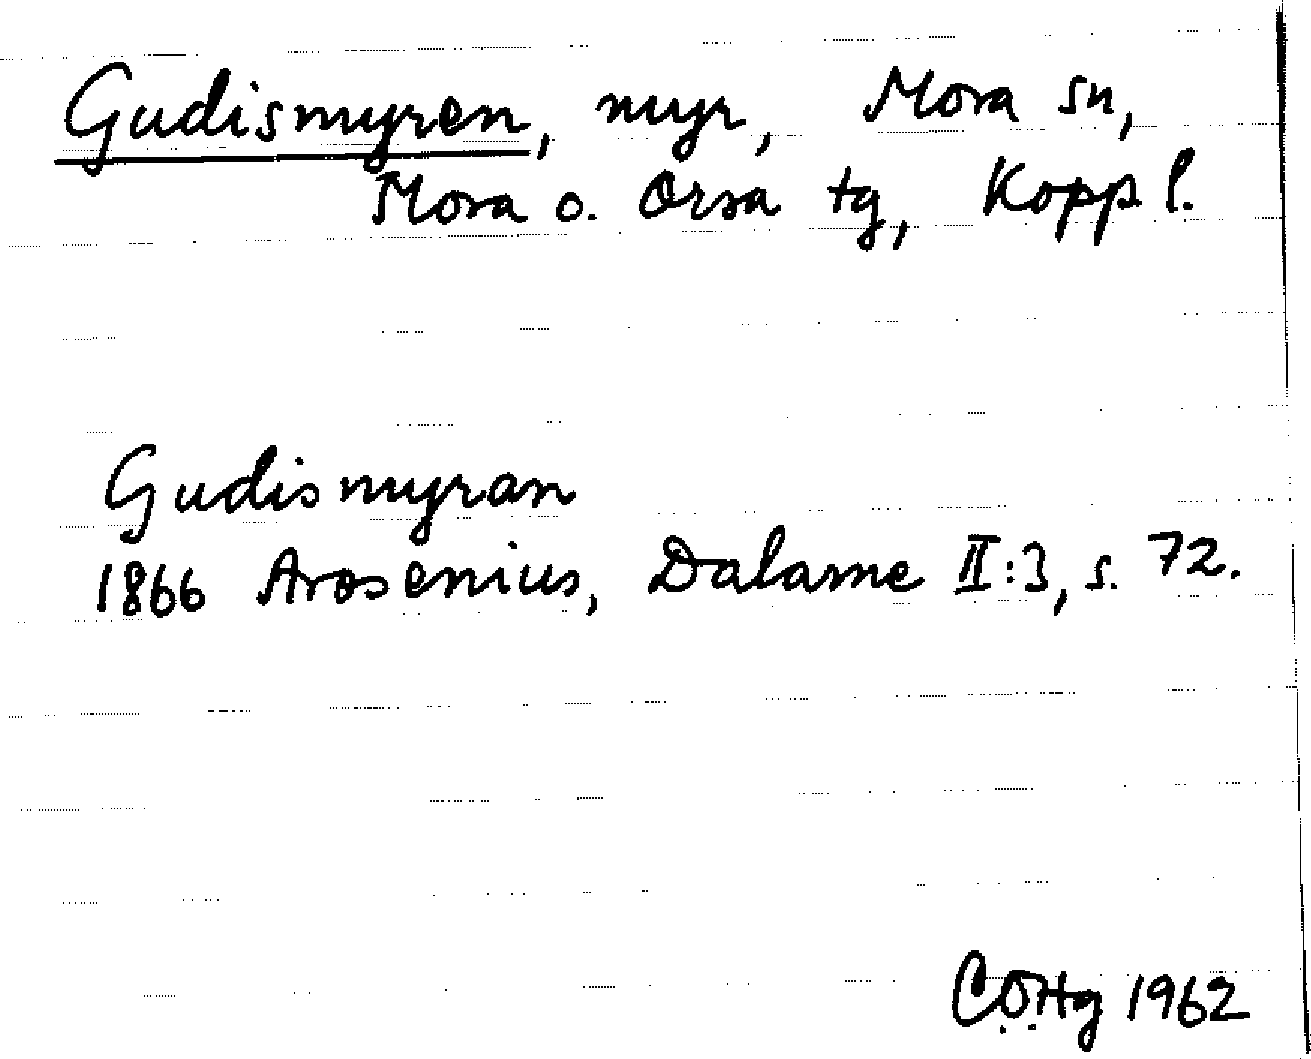 Gudismyren, myr, Mora sn,
Mora o. Orsa tg, Kopp l.
Gudismyran
1866 Arosenius, Dalarne II:3, s. 72.
1962